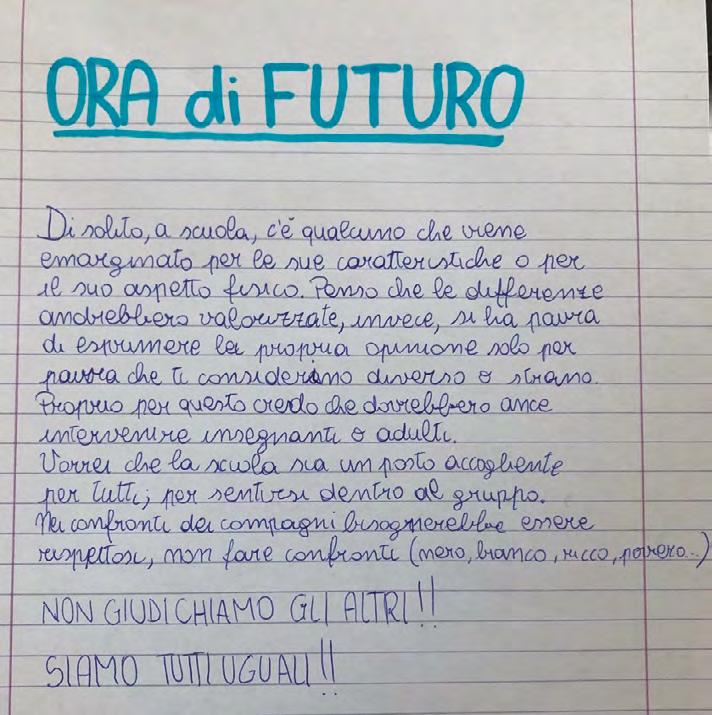 ORA di FUTURO
Di solito, a scuola, c'è qualcuno che viene
emarginato per le sue caratteristiche o per
il suo aspetto fisico. Penso che le differenze
andrebbero valorizzate, invece, si ha paura
di esprimere la propria opinione solo per
paura che ti considerano diverso o strano.
Proprio per questo credo che dovrebbero ance
intervenire insegnanti o adulti.
Vorrei che la scuola sia un posto accogliente
per tutti; per sentirsi dentro al gruppo.
Nei confronti dei compagni bisognerebbe essere
rispettosi, non fare confronti (nero, bianco, ricco, povero...)
NON GIUDICHIAMO GLI ALTRI!!
SIAMO TUTTI UGUALI!!